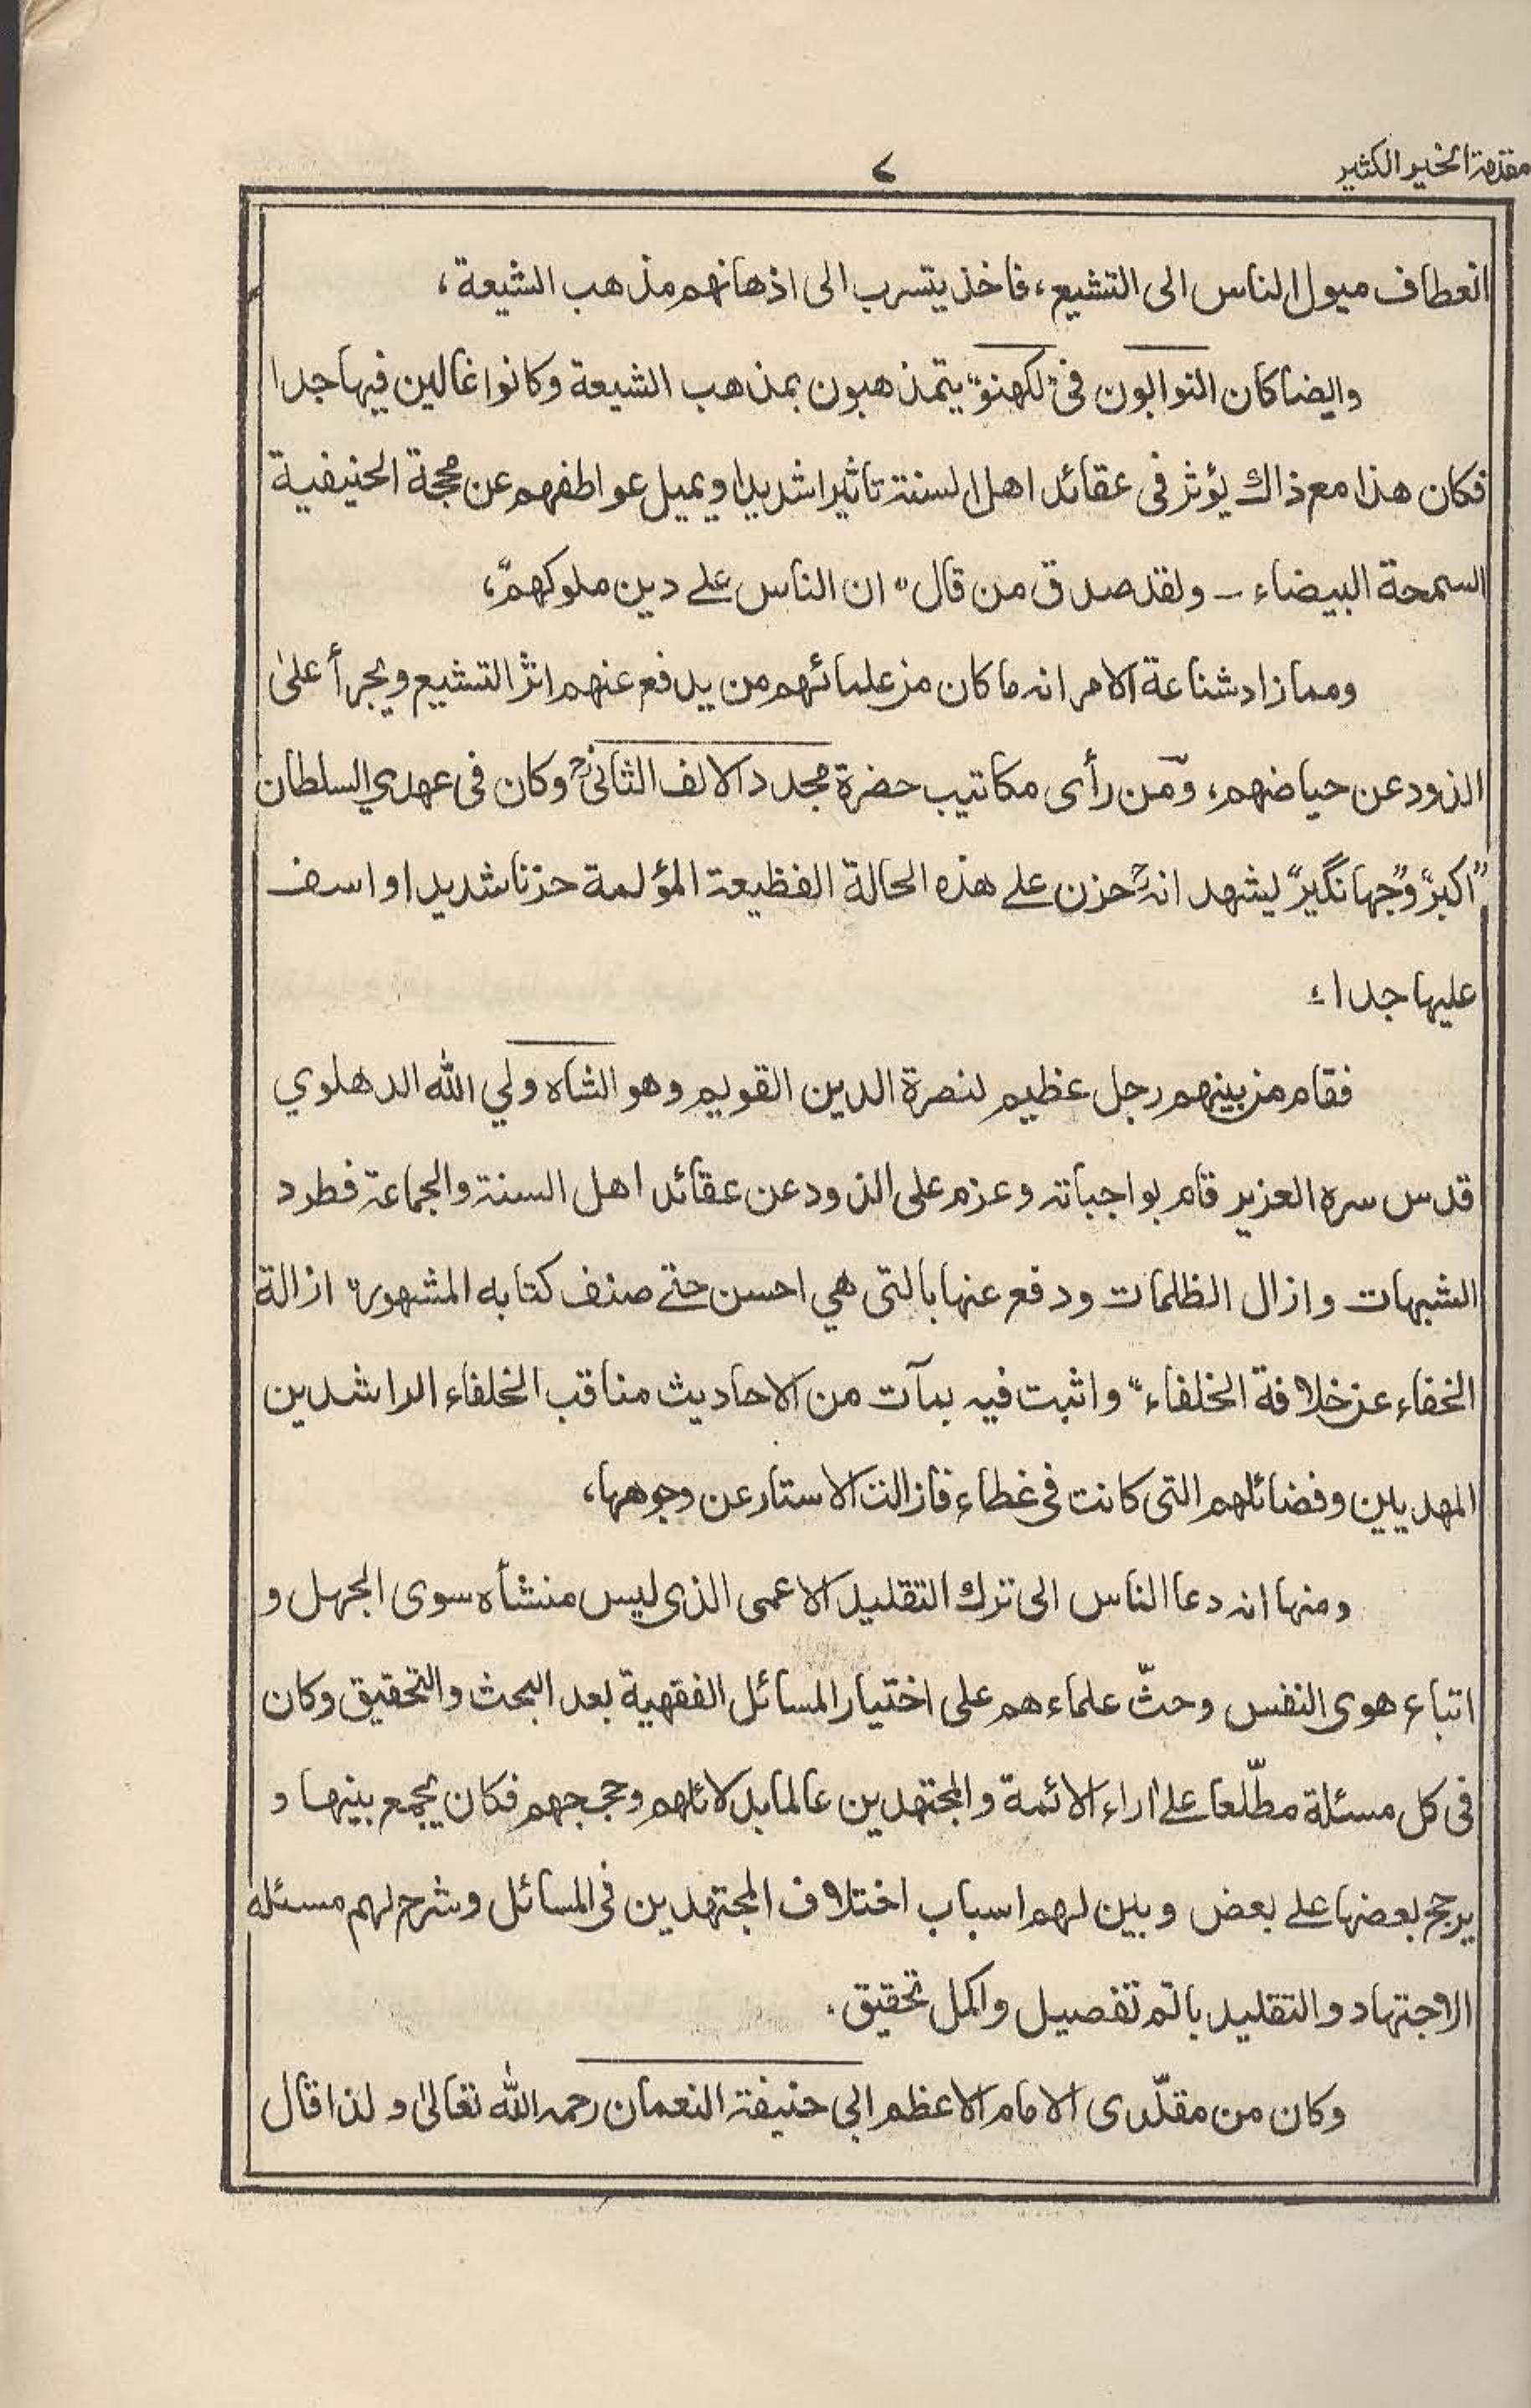 مقدمة الخير الكثير
٧
انعطاف ميول الناس الى التشيع، فاخذ يتسرب الى اذهانهم مذهب الشيعة،
وايضا كان النوابون فى "لكهنؤ" يتمذهبون بمذهب الشيعة وكانوا غالين فيها جدا
فكان هذا مع ذاك يؤثر فى عقائد اهل السنة تاثيرا شديدا ويميل عواطفهم عن محجة الحنيفية
السمحة البيضاء - ولقد صدق من قال "ان الناس على دين ملوكهم"،
ومما زاد شناعة الامر انه ما كان من علمائهم من يدفع عنهم اثر التشيع ويجرأ على
الذود عن حياضهم، ومن رأى مكاتيب حضرة مجدد الالف الثانىؒ وكان فى عهدي السلطان
"اكبر" و"جهانگير" ليشهد انهؒ حزن على هذه الحالة الفظيعة المؤلمة حزنا شديدا واسف
عليها جدا،
فقام من بينهم رجل عظيم لنصرة الدين القويم وهو الشاه ولي الله الدهلوي
قدس سره العزيز قام بواجباته وعزم على الذود عن عقائد اهل السنة والجماعة فطرد
الشبهات وازال الظلمات ودفع عنها بالتى هي احسن حتے صنف كتابه المشهور "ازالة
الخفاء عن خلافة الخلفاء" واثبت فيه بمآت من الاحاديث مناقب الخلفاء الراشدين
المهديين وفضائلهم التى كانت فى غطاء فازالت الاستار عن وجوهها،
ومنها انه دعا الناس الى ترك التقليد الاعمى الذى ليس منشأه سوى الجهل و
اتباع هوى النفس وحثّ علماءهم على اختيار المسائل الفقهية بعد البحث والتحقيق وكان
فى كل مسئلة مطّلعا على أراء الائمة والمجتهدين عالما بدلائلهم وحججهم فكان يجمع بينها و
يرجح بعضها على بعض وبين لهم اسباب اختلاف المجتهدين فى المسائل وشرح لهم مسئله
الاجتهاد والتقليد باتم تفصيل واكمل تحقيق.
وكان من مقلّدى الامام الاعظم ابي حنيفة النعمان رحمه الله تعالىٰ ولذا قال